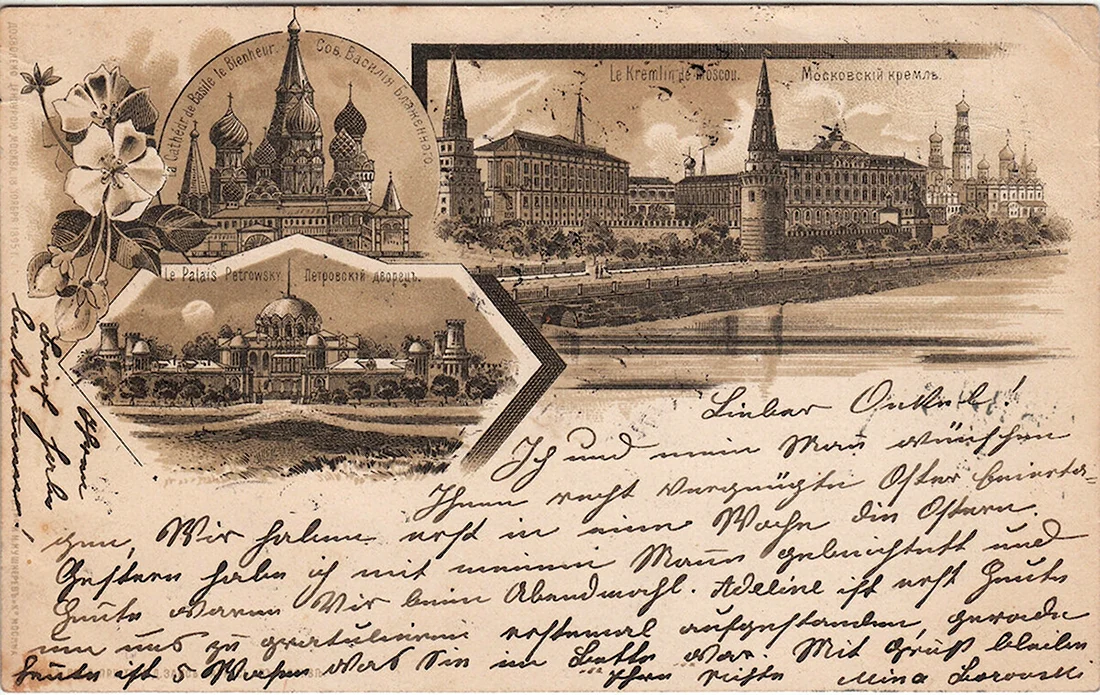 La Cathédr de Basile le Bienheur.
Соб. Василія Блаженнаго
Le Kremlin de Moscou.
Московскій кремль.
Le Palais Petrowsky.
Петровскій дворецъ.
Lieber Onkel!
Ich und mein Mann wünschen
Ihnen recht vergnügte Osterfeierta-
gen, Wir haben erst in eine Woche die Ostern.
Gestern habe ich mit meinem Mann gebeichtett und
Heute waren Wir beim Abendmahl. Adeline ist erst Heute
um uns zu gratulieren erstemal aufgestanden, gerade
Heute ist 5 Wochen was Sie im Bette war. Mit Gruß bleiben
Ihre Nichte Mina